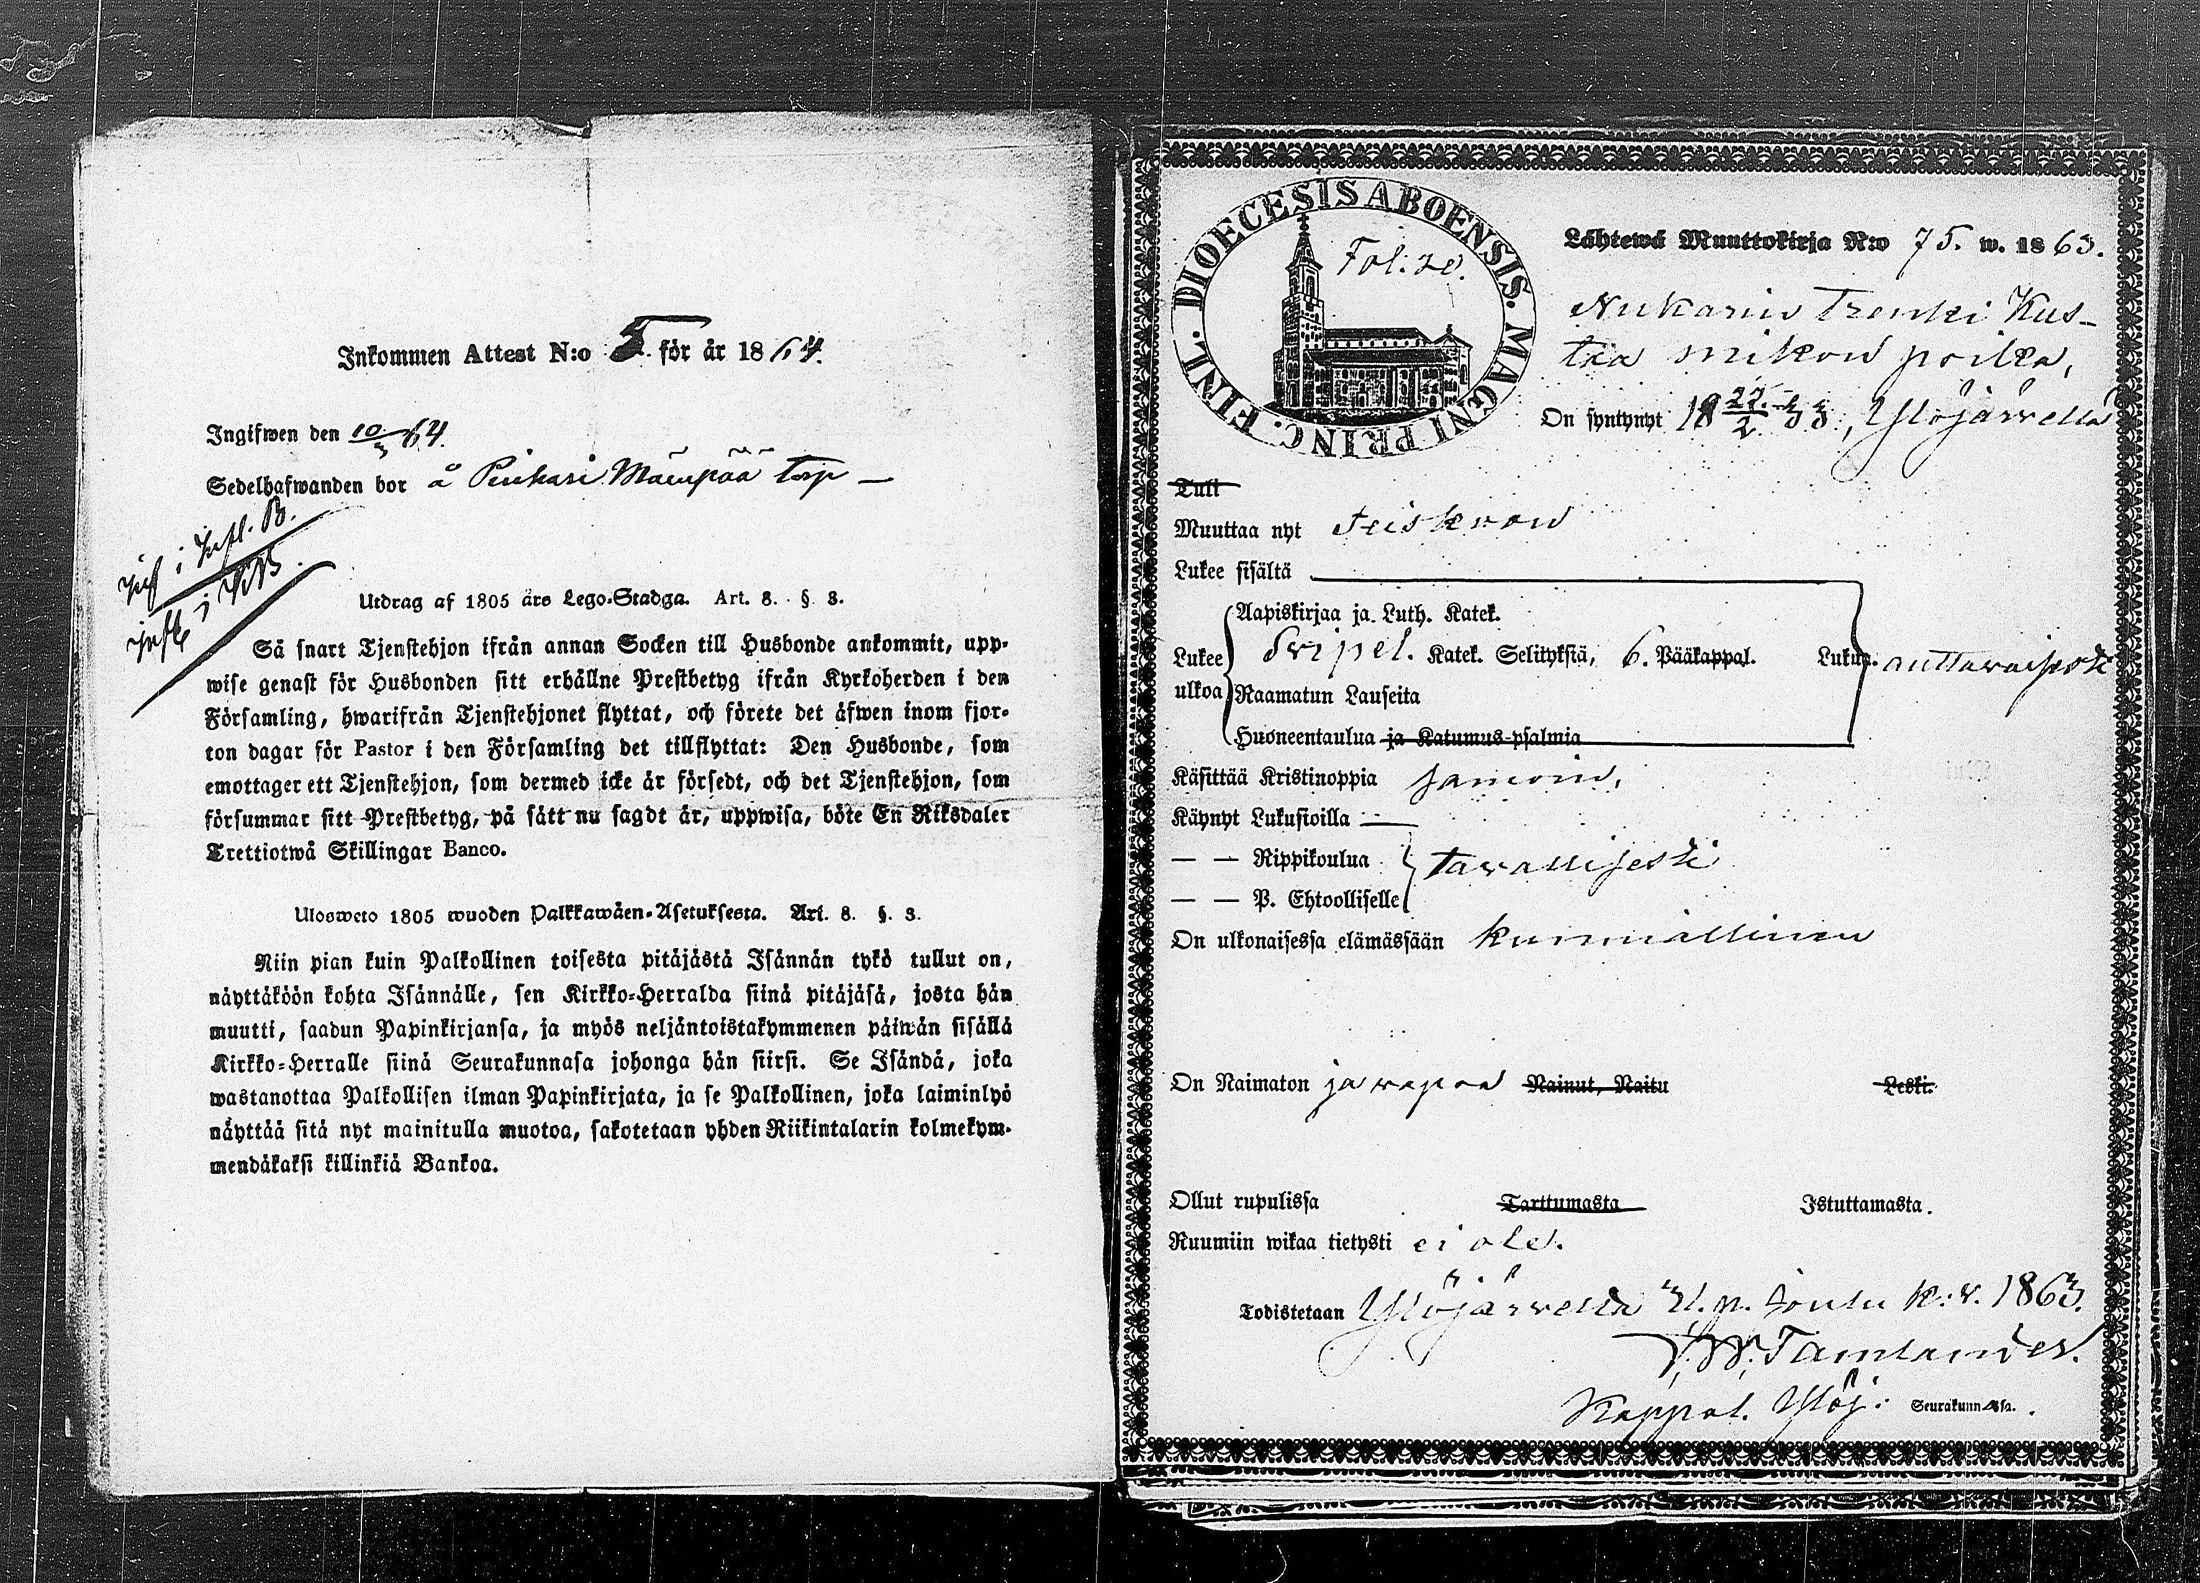 Inkommen Attest N:o 5. för år 1864.
Ingifwen den 10/3 64.
Sedelhafwanden bor å Pirkasi Mäenpää torp
inf i Infl. B.
Utdrag af 1805 års Lego-Stadga. Art. 8. § 3.
Så snart Tjenstehjon ifrån annan Socken till Husbonde ankommit, upp-
wise genast för Husbonden sitt erhållne Prestbetyg ifrån Kyrkoherden i den
Församling, hwarifrån Tjenstehjonet flyttat, och förete det äfwen inom fjor-
ton dagar för Pastor i den Församling det tillflyttat: Den Husbonde, som
emottager ett Tjenstehjon, som dermed icke är försedt, och det Tjenstehjon, som
försummar sitt Prestbetyg, på sätt nu sagdt är, uppwisa, böte En Riksdaler
Trettiotwå Skillingar Banco.
Ulosweto 1805 wuoden Palkkawäen-Asetuksesta. Art. 8. §. 3.
Niin pian kuin Palkollinen toisesta pitäjästä Isännän tykö tullut on,
näyttäköön kohta Isännälle, sen Kirkko-Herralda siinä pitäjäsä, josta hän
muutti, saadun Papinkirjansa, ja myös neljäntoistakymmenen päiwän sisällä
Kirkko-Herralle siinä Seurakunnasa johonga hän siirsi. Se Isändä, joka
wastanottaa Palkollisen ilman Papinkirjata, ja se Palkollinen, joka laiminlyö
näyttää sitä nyt mainitulla muotoa, sakotetaan yhden Riikintalarin kolmekym-
mendäkaksi killinkiä Bankoa.
DIOECESIS ABOENSIS. MAGNI PRINC. FINL.
Fol: 20.
Lähtewä Muuttokirja N:o 75. w. 1863.
Nukarin Trenki Kus-
taa mikon poika,
On syntynyt 18 22/2 33, Ylöjärwellä
Tuli
Muuttaa nyt Teiskoon
Lukee sisältä
Aapiskirjaa ja Luth. Katek.
Lukee ulkoa Svipel. Katek. Selityksiä, 6. Pääkappal. Lukun. auttawaisesti
Raamatun Lauseita
Huoneentaulua ja Katumus-psalmia
Käsittää Kristinoppia samoin,
Käynyt Lukusioilla
— — Rippikoulua tawallisesti
— — P. Ehtoolliselle
On ulkonaisessa elämässään kunniallinen
On Naimaton ja wapaa Nainut, Naitu Leski.
Ollut rupulissa Tarttumasta Istuttamasta.
Ruumiin wikaa tietysti ei ole.
Todistetaan Ylöjärwellä 21. p. Joulu k:v. 1863.
Tamlander.
Kappal. Ylöj: Seurakunnasa.